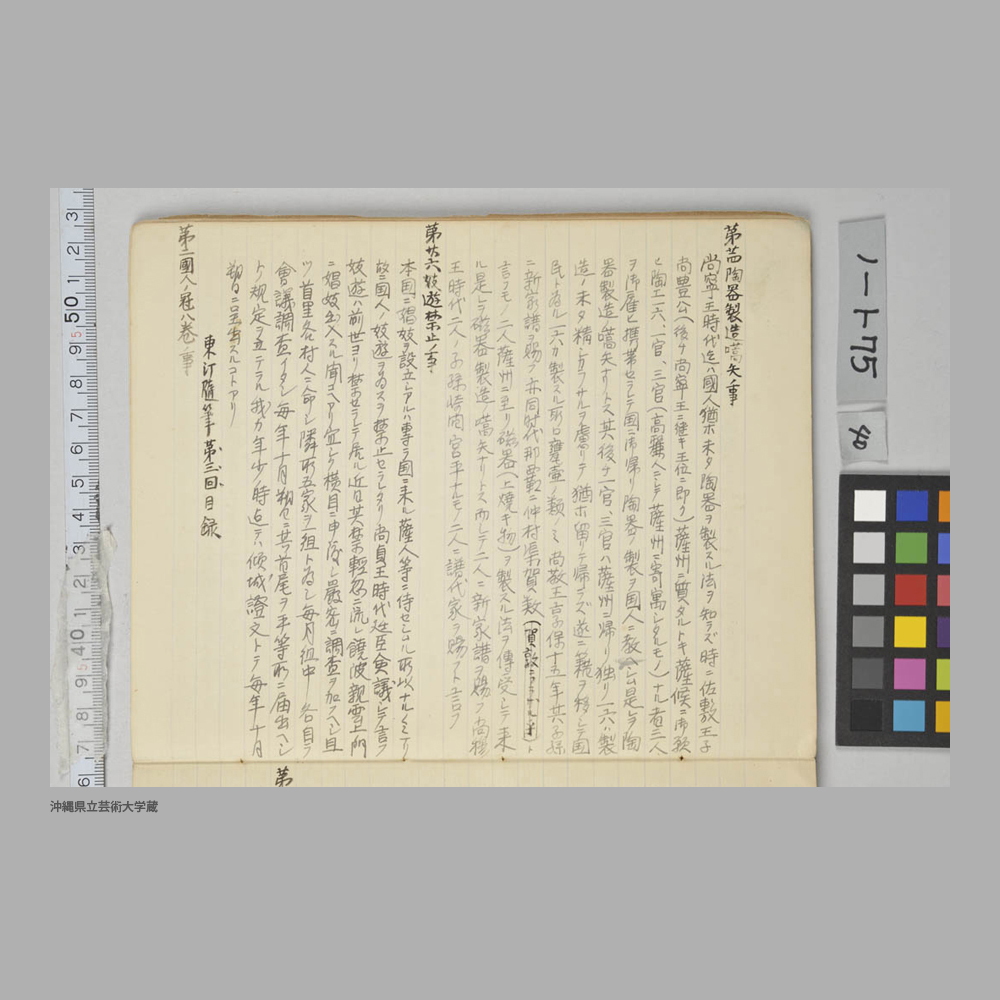 第廿五陶器製造嚆矢ノ事
尚寧王時代迄ハ國人猶ホ未タ陶器ヲ製スル法ヲ知ラズ時ニ佐敷王子
尚豊公(後チ尚寧王ニ継キ王位ニ即ク)薩州ニ質タルトキ薩候ニ御願
ヒ陶工一六、一官、三官(高麗人ニシテ薩州ニ寄寓シタルモノ)ナル者三人
ヲ御雇ヒ携帯セラレテ国ニ御帰リ陶器ノ製ヲ国人ニ教ヘシム是レヲ陶
器製造ノ嚆矢ナリトス其後チ一官、三官ハ薩州ニ帰リ独リ一六ハ製
造ノ未タ精シカラサルヲ慮リテ猶ホ留リテ帰ラズ遂ニ籍ヲ移シテ国
民トナル一六カ製スル所ロ甕壷ノ類ノミ尚敬王享保十五年其子孫
ニ新家譜ヲ賜フ亦同時代那覇ニ仲村渠賀数ト
言フモノ二人薩州ニ至リ磁器(上焼キ物)ヲ製スル法ヲ傳受シテ来
ル是レヲ磁器製造ノ嚆矢ナリトス而シテ二人ニ新家譜ヲ賜フ尚穆
王時代二人ノ子孫宮平ナルモノ二人ニ譜代家ヲ賜フト言フ
第廿六妓遊禁止ノ事
本国ニ娼妓ヲ設立シアルハ専ラ国ニ来ル薩人等ニ侍セシムル所以ナルノミナリ
故ニ国人ノ妓遊ヲ為スヲ禁止セラレタリ尚貞王時代廷臣僉議シテ言フ
妓遊ハ前世ヨリ禁セラレテ居ル近日其禁輕忽ニ流レ饒波親雲上門
ニ娼妓出入スル聞コヘアリ宜シク横目ニ申渡シ嚴密ニ調査ヲ加フヘシ且
ツ首里各村人ニ命シ隣所五家ヲ一組ト為シ毎月組中 各自ラ
會議調査イタシ毎年十月朔日ニ其ノ首尾ヲ平等所ニ届出ヘシ
ト規定ヲ立テラル我カ年少ノ時迄テハ傾城證文トテ毎年十月
朔日ニ呈出スルコトアリ
東汀隨筆第三回目録
第二國人ノ冠八巻ノ事
第
ノート75
40
沖縄県立芸術大学蔵